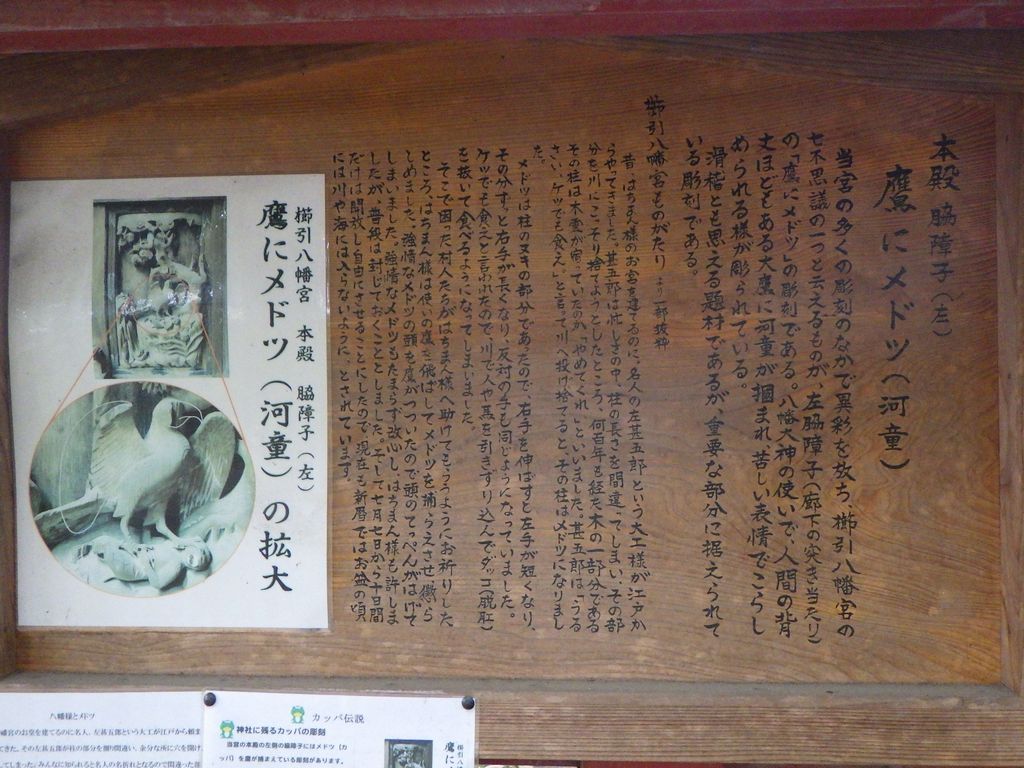 本殿 脇障子(左)
鷹にメドツ(河童)
当宮の多くの彫刻のなかで異彩を放ち、櫛引八幡宮の
七不思議の一つと云えるものが、左脇障子(廊下の突き当たり)
の「鷹にメドツ」の彫刻である。八幡大神の使いで、人間の背
丈ほどもある大鷹に河童が掴まれ苦しい表情でこらし
められる様が彫られている。
滑稽とも思える題材であるが、重要な部分に据えられて
いる彫刻である。
櫛引八幡宮ものがたり より一部抜粋
昔、はちまん様のお宮を建てるのに、名人の左甚五郎という大工様が江戸か
らやってきました。甚五郎は忙しさの中、柱の長さを間違ってしまい、その部
分を川にこっそり捨てようとしたところ、何百年も経た木の一部分である
その柱は木霊が宿っていたのか「やめてくれ」といいました。甚五郎は「うる
さい、ケツでも食え」と言って、川へ投げ捨てると、その柱はメドツになりまし
た。
メドツは柱のヌキの部分であったので、右手を伸ばすと左手が短くなり、
その分、すっと右手が長くなり、反対の手も同じようになっていました。
ケツでも食えと言われたので、川で人や馬を引きずり込んでダッコ(脱肛)
を抜いて食べるようになってしまいました。
そこで困った村人たちがはちまん様へ助けてもらうようにお祈りした
ところ、はちまん様は使いの鷹を飛ばしてメドツを捕らえさせ懲ら
しめました。強情なメドツの頭を鷹がつついたので頭のてっぺんがはげて
しまいました。強情なメドツもたまらず改心し、はちまん様も許しま
したが、普段は封じておくこととしました。そして七月七日から十日間
だけは開放し自由にさせることにしたので、現在も新暦ではお盆の頃
には川や海には入らないように、とされています。
櫛引八幡宮 本殿 脇障子(左)
鷹にメドツ(河童)の拡大
八幡様とメドツ
幡宮のお堂を建てるのに名人、左甚五郎という大工が江戸から頼ま
てきた。その左甚五郎が柱の部分を掘り間違い、余分な所に穴を開け
てしまった。みんなに知られると名人の名折れとなるので間違った部
カッパ伝説
神社に残るカッパの彫刻
当宮の本殿の左側の脇障子にはメドツ(カ
ッパ)を鷹が捕まえている彫刻があります。
櫛引八
鷹に